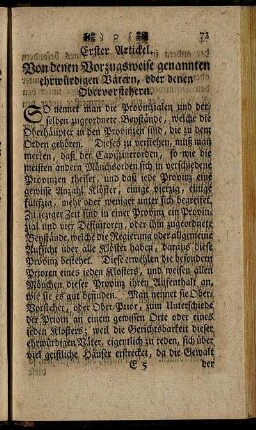 73
Erster Artickel.
Von denen Vorzugsweise genannten
ehrwürdigen Vätern, oder denen
Obervorstehern.
SO nennet man die Provinzialen und der-
selben zugeordnete Beystände, welche die
Oberhäupter in den Provinzen sind, die zu dem
Orden gehören. Dieses zu verstehen, muß man
merken, daß der Capuzinerorden, so wie die
meisten andern Mönchsorden sich in verschiedene
Provinzen theilet, und daß jede Provinz eine
gewisse Anzahl Klöster, einige vierzig, einige
fünfzig, mehr oder weniger unter sich begreifet.
Zu jeziger Zeit sind in einer Provinz ein Provin-
zial und vier Definitoren, oder ihm zugeordnete
Beystände, welche die Regierung oder allgemeine
Aufsicht über alle Klöster haben, daraus diese
Provinz bestehet. Diese erwählen die besondern
Prioren eines jeden Klosters, und weisen allen
Mönchen dieser Provinz ihren Aufenthalt an,
wie sie es gut befinden. Man nennet sie Ober-
Vorsteher, oder Ober-Prior, zum Unterschiede
der Priorn an einem gewissen Orte oder eines
jeden Klosters; weil die Gerichtsbarkeit dieser
ehrwürdigen Väter, eigentlich zu reden, sich über
viel geistliche Häuser erstrecket, da die Gewalt
E 5 der